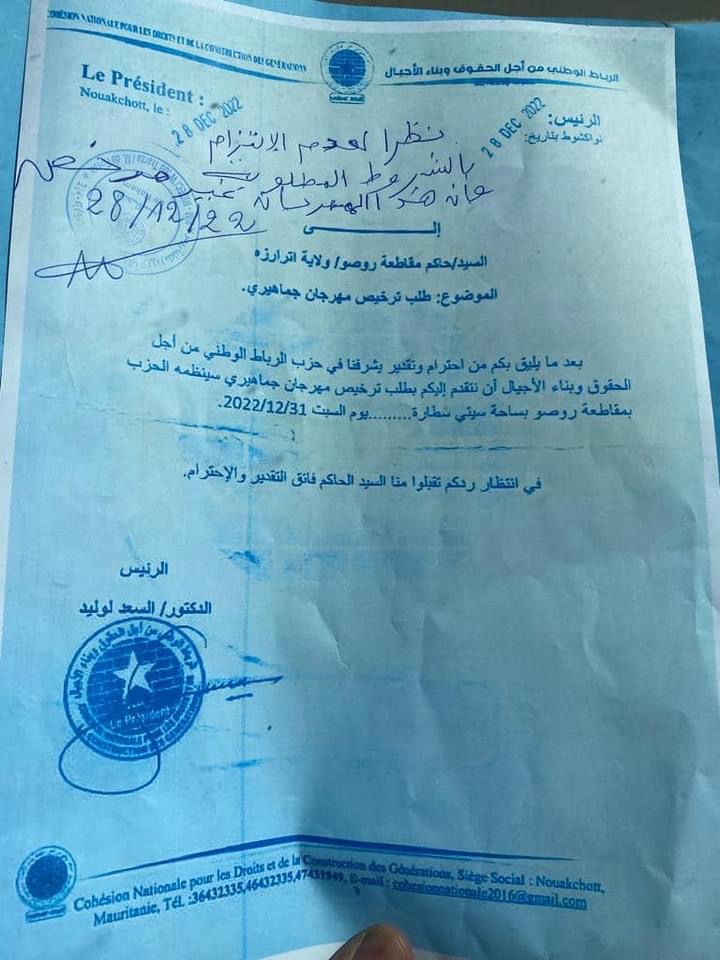 COHÉSION NATIONALE POUR LES DROITS ET DE LA CONSTRUCTION DES GÉNÉRATIONS
الرباط الوطني من أجل الحقوق وبناء الأجيال
Le Président :
Nouakchott, le :
28 DEC 2022
الرئيس:
نواكشوط بتاريخ:
28 DEC 2022
نظرا لعدم الالتزام
بالشروط المطلوبة
فان هذا المهرجان غير مرخص
28/12/22
إلــــى
السيد/حاكم مقاطعة روصو/ ولاية اترارزه
الموضوع: طلب ترخيص مهرجان جماهيري.
بعد ما يليق بكم من احترام وتقدير يشرفنا في حزب الرباط الوطني من أجل
الحقوق وبناء الأجيال أن نتقدم إليكم بطلب ترخيص مهرجان جماهيري سينظمه الحزب
بمقاطعة روصو بساحة سيتي سطارة.........يوم السبت 2022/12/31.
في انتظار ردكم تقبلوا منا السيد الحاكم فائق التقدير والإحترام.
الرئيس
الدكتور/ السعد لوليد
الرباط الوطني من أجل الحقوق وبناء الأجيال
Le Président
Cohésion Nationale pour les Droits et de la Construction des Générations, Siège Social : Nouakchott,
Mauritanie, Tél. :36432335,46432335,47431949, E-mail : cohesionnationale2016@gmail.com